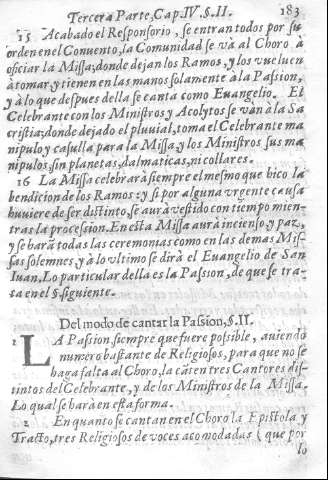 Tercera Parte, Cap. IV. §. II. 183
15 Acabado el Responsorio, se entran todos por su
orden en el Convento, la Comunidad se và al Choro à
oficiar la Missa; donde dejan los Ramos, y los vuelven
à tomar y tienen en las manos solamente à la Passion,
y à lo que despues della se canta como Euangelio. El
Celebrante con los Ministros y Acolytos se vàn à la Sa
cristia; donde dejado el pluuial, toma el Celebrante ma
nipulo y casulla para la Missa, y los Ministros sus ma
nipulos, sin planetas, dalmaticas, ni collares.
16 La Missa celebrarà siempre el mesmo que hico la
bendicion de los Ramos: y si por alguna vrgente causa
huuiere de ser distinto, se aurà vestido con tiempo mien
tras la procession. En esta Missa aurà incienso, y paz,
y se haràn todas las ceremonias como en las demas Mis-
sas solemnes, y à lo vltimo se dirà el Euangelio de San
Iuan. Lo particular della es la Passion, de que se tra-
ta en el §. siguiente.
Del modo de cantar la Passion, §. II.
1 LA Passion siempre que fuere possible, auiendo
numero bastante de Religiosos, para que no se
haga falta al Choro, la cãten tres Cantores dis-
tintos del Celebrante, y de los Ministros de la Missa.
Lo qual se harà en esta forma.
2 En quanto se cantan en el Choro la Epistola y
Tracto, tres Religiosos de voces acomodadas (que por
lo